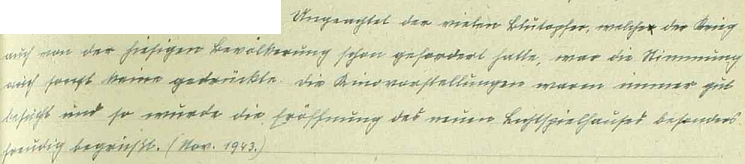 Ungeachtet der vielen Blutopfer, welche der Krieg
auch von der hiesigen Bevölkerung schon gefordert hatte, war die Stimmung
auch sonst keine gedrückte. Die Kinovorstellungen waren immer gut
besucht und so wurde die Eröffnung des neuen Lichtspielhauses besonders
freudig begrüßt. (Nov. 1943.)